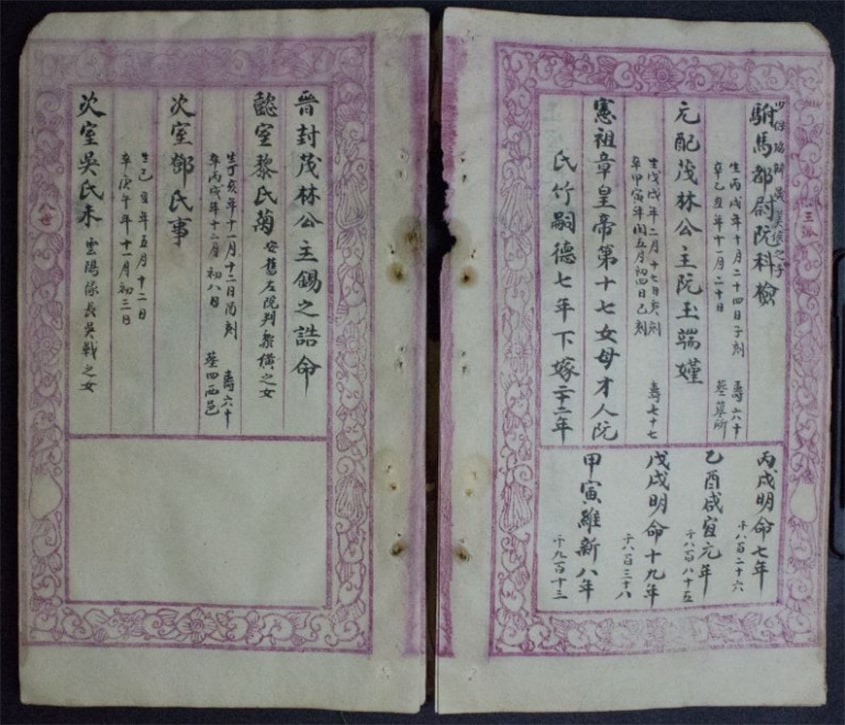 三派
駙馬都尉阮科檢
生丙戌年十月二十四日子刻 壽六十
卒乙丑年十一月二十日 墓算所
元配茂林公主阮玉端嫤
生戊戌年二月十七日亥刻 壽七十七
卒甲寅年閏五月初四日巳刻
憲祖章皇帝第十七女母才人阮
氏竹嗣德七年下嫁二十二年
丙戌明命七年
千八百二十六
乙酉咸宜元年
千八百八十五
戊戌明命十九年
千八百三十八
甲寅維新八年
千九百十三
晉封茂林公主錫之誥命
懿室黎氏菊 安舊左院判黎橫之女
生丁亥年十一月十二日酉刻 壽六十
卒丙戌年十二月初八日 墓四西邑
次室鄧氏事
次室吳氏未 雲陽係長吳戰之女
生己丑年五月十二日
卒庚午年十一月初三日
八世